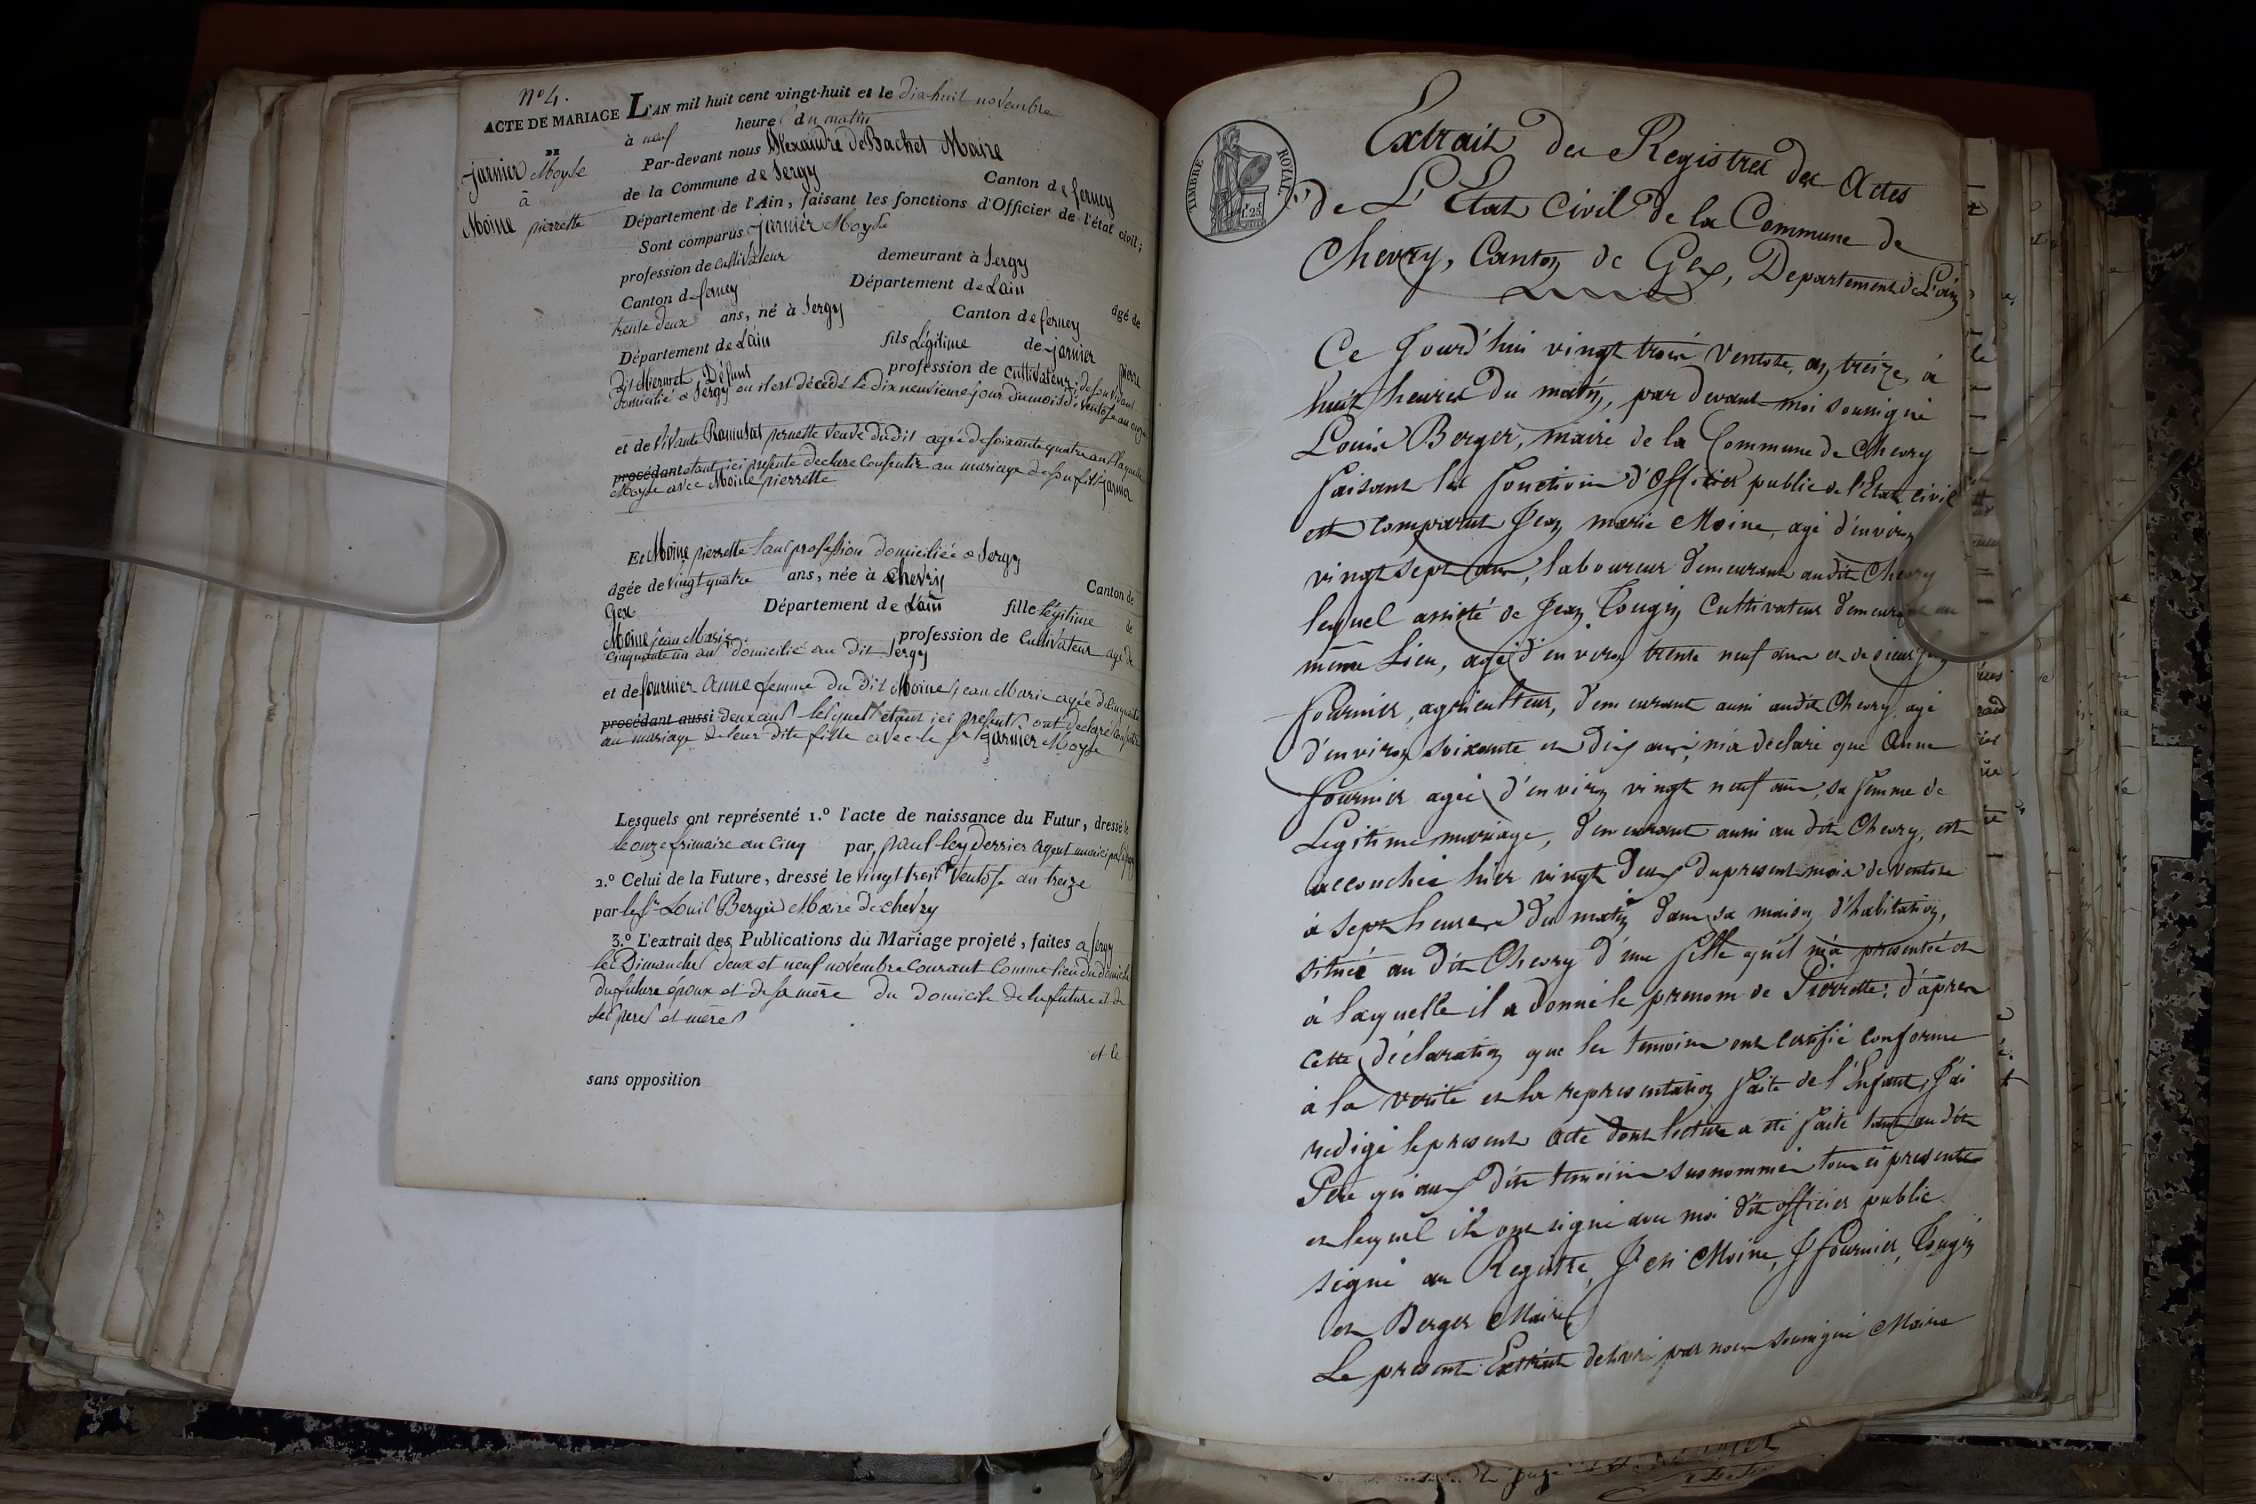 N° 4.
ACTE DE MARIAGE
DE
Jarnier Moyse
à
Moine pierrette
L'AN mil huit cent vingt-huit et le dix-huit novembre
à neuf heures du matin
Par-devant nous Alexandre DeBachet Maire
de la Commune de Sergy Canton de ferney
Département de l'Ain, faisant les fonctions d'Officier de l'état civil;
Sont comparus Jarnier Moyse
profession de cultivateur demeurant à Sergy
Canton de ferney Département de Lain agé de
trente deux ans, né à Sergy Canton de ferney
Département de Lain fils Légitime de jarnier pierre
Dit Mermet Défunt profession de cultivateur; de son vivant
domicilié à Sergy ou il est décédé le dix neuvieme jour du mois de ventose an onze
et de vivante Ramusat pernette veuve du dit agée de soixante quatre ans laquelle
procédant etant ici presente declare consentir au mariage de son fils jarnier
Moyse avec Moine pierrette
Et Moine pierrette sans profession domiciliée a Sergy
agée de vingt quatre ans, née à chevry Canton de
Gex Département de Lain fille légitime de
Moine jean Marie profession de cultivateur agé de
cinquante un ans domicilié au dit Sergy
et de fournier anne femme du dit Moine jean Marie agée de cinquante
procédant aussi deux ans lesquels etans ici presents ont declaré consentir
au mariage de leur dite fille avec le sr jarnier Moyse
Lesquels ont représenté 1.° l'acte de naissance du Futur, dressé le
le onze frimaire an cinq par, paul ley derrier agent municipal
2.° Celui de la Future, dressé le vingt trois ventose an treize
par le sr Louis Berger Maire de chevry
3.° L'extrait des Publications du Mariage projeté, faites a sergy
les Dimanches deux et neuf novembre courant comme lieu du domicile
du future epoux et de sa mère du domicile de la future et de
ses peres et meres
et le
sans opposition
TIMBRE ROYAL
Extrait des Registres des Actes
de L'Etat Civil de la Commune de
Chevry, Canton de Gex, Departement de L'ain
Ce Jourd'hui vingt trois Ventose, an treize, à
huit heures du matin, par devant moi soussigné
Louis Berger, maire de la Commune de Chevry
faisant les fonctions d'Officier public de l'Etat civil
est comparut Jean marie Moine, agé d'environ
vingt sept ans, laboureur demeurant audit Chevry
lequel assisté de Jean Tougin Cultivateur demeurant au
même Lieu, agé d'environ trente neuf ans et de sieur Jean
fournier, agriculteur, demeurant aussi audit Chevry, agé
d'environ soixante et dix ans, m'a déclaré que Anne
fournier agée d'environ vingt neuf ans, sa femme de
Legitime mariage, demeurant aussi au dit Chevry, est
accouchée hier vingt deux du present mois de ventose
à sept heures du matin dans sa maison d'habitation,
située au dit Chevry d'une fille qu'il m'a presentée et
à laquelle il a donné le prenom de Pierrette; d'après
cette déclaration que les temoins ont certifié conforme
à la verité et la representation faite de l'Enfant, J'ai
redigé le present acte dont lecture a été faite tant au dit
Père qu'aux dits temoins susnommés tous ci presents
et lequel ils ont signé avec moi dit officier public.
signé au Registre, J en Moine, J fournier, Tougin
et Berger Maire
Le present Extrait delivré par nous soussigné Maire